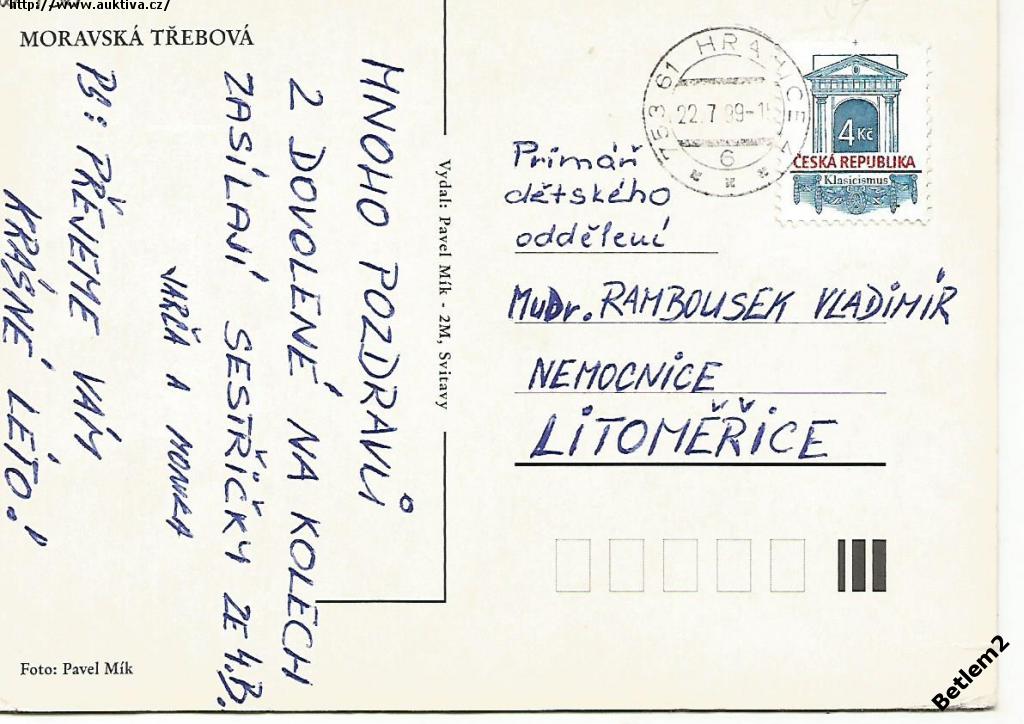 http://www.auktiva.cz/
MORAVSKÁ TŘEBOVÁ
MNOHO POZDRAVŮ
Z DOVOLENÉ NA KOLECH
ZASÍLAJÍ SESTŘIČKY ZE 4.B.
JARČA A MONČA
PS: PŘEJEME VÁM
KRÁSNÉ LÉTO!
Foto: Pavel Mík
Vydal: Pavel Mík - 2M, Svitavy
753 61 HRANICE
22.7.99-15
6
4 Kč
ČESKÁ REPUBLIKA
Klasicismus
Primář
dětského
oddělení
MuDr. RAMBOUSEK VLADIMÍR
NEMOCNICE
LITOMĚŘICE
Betlem2